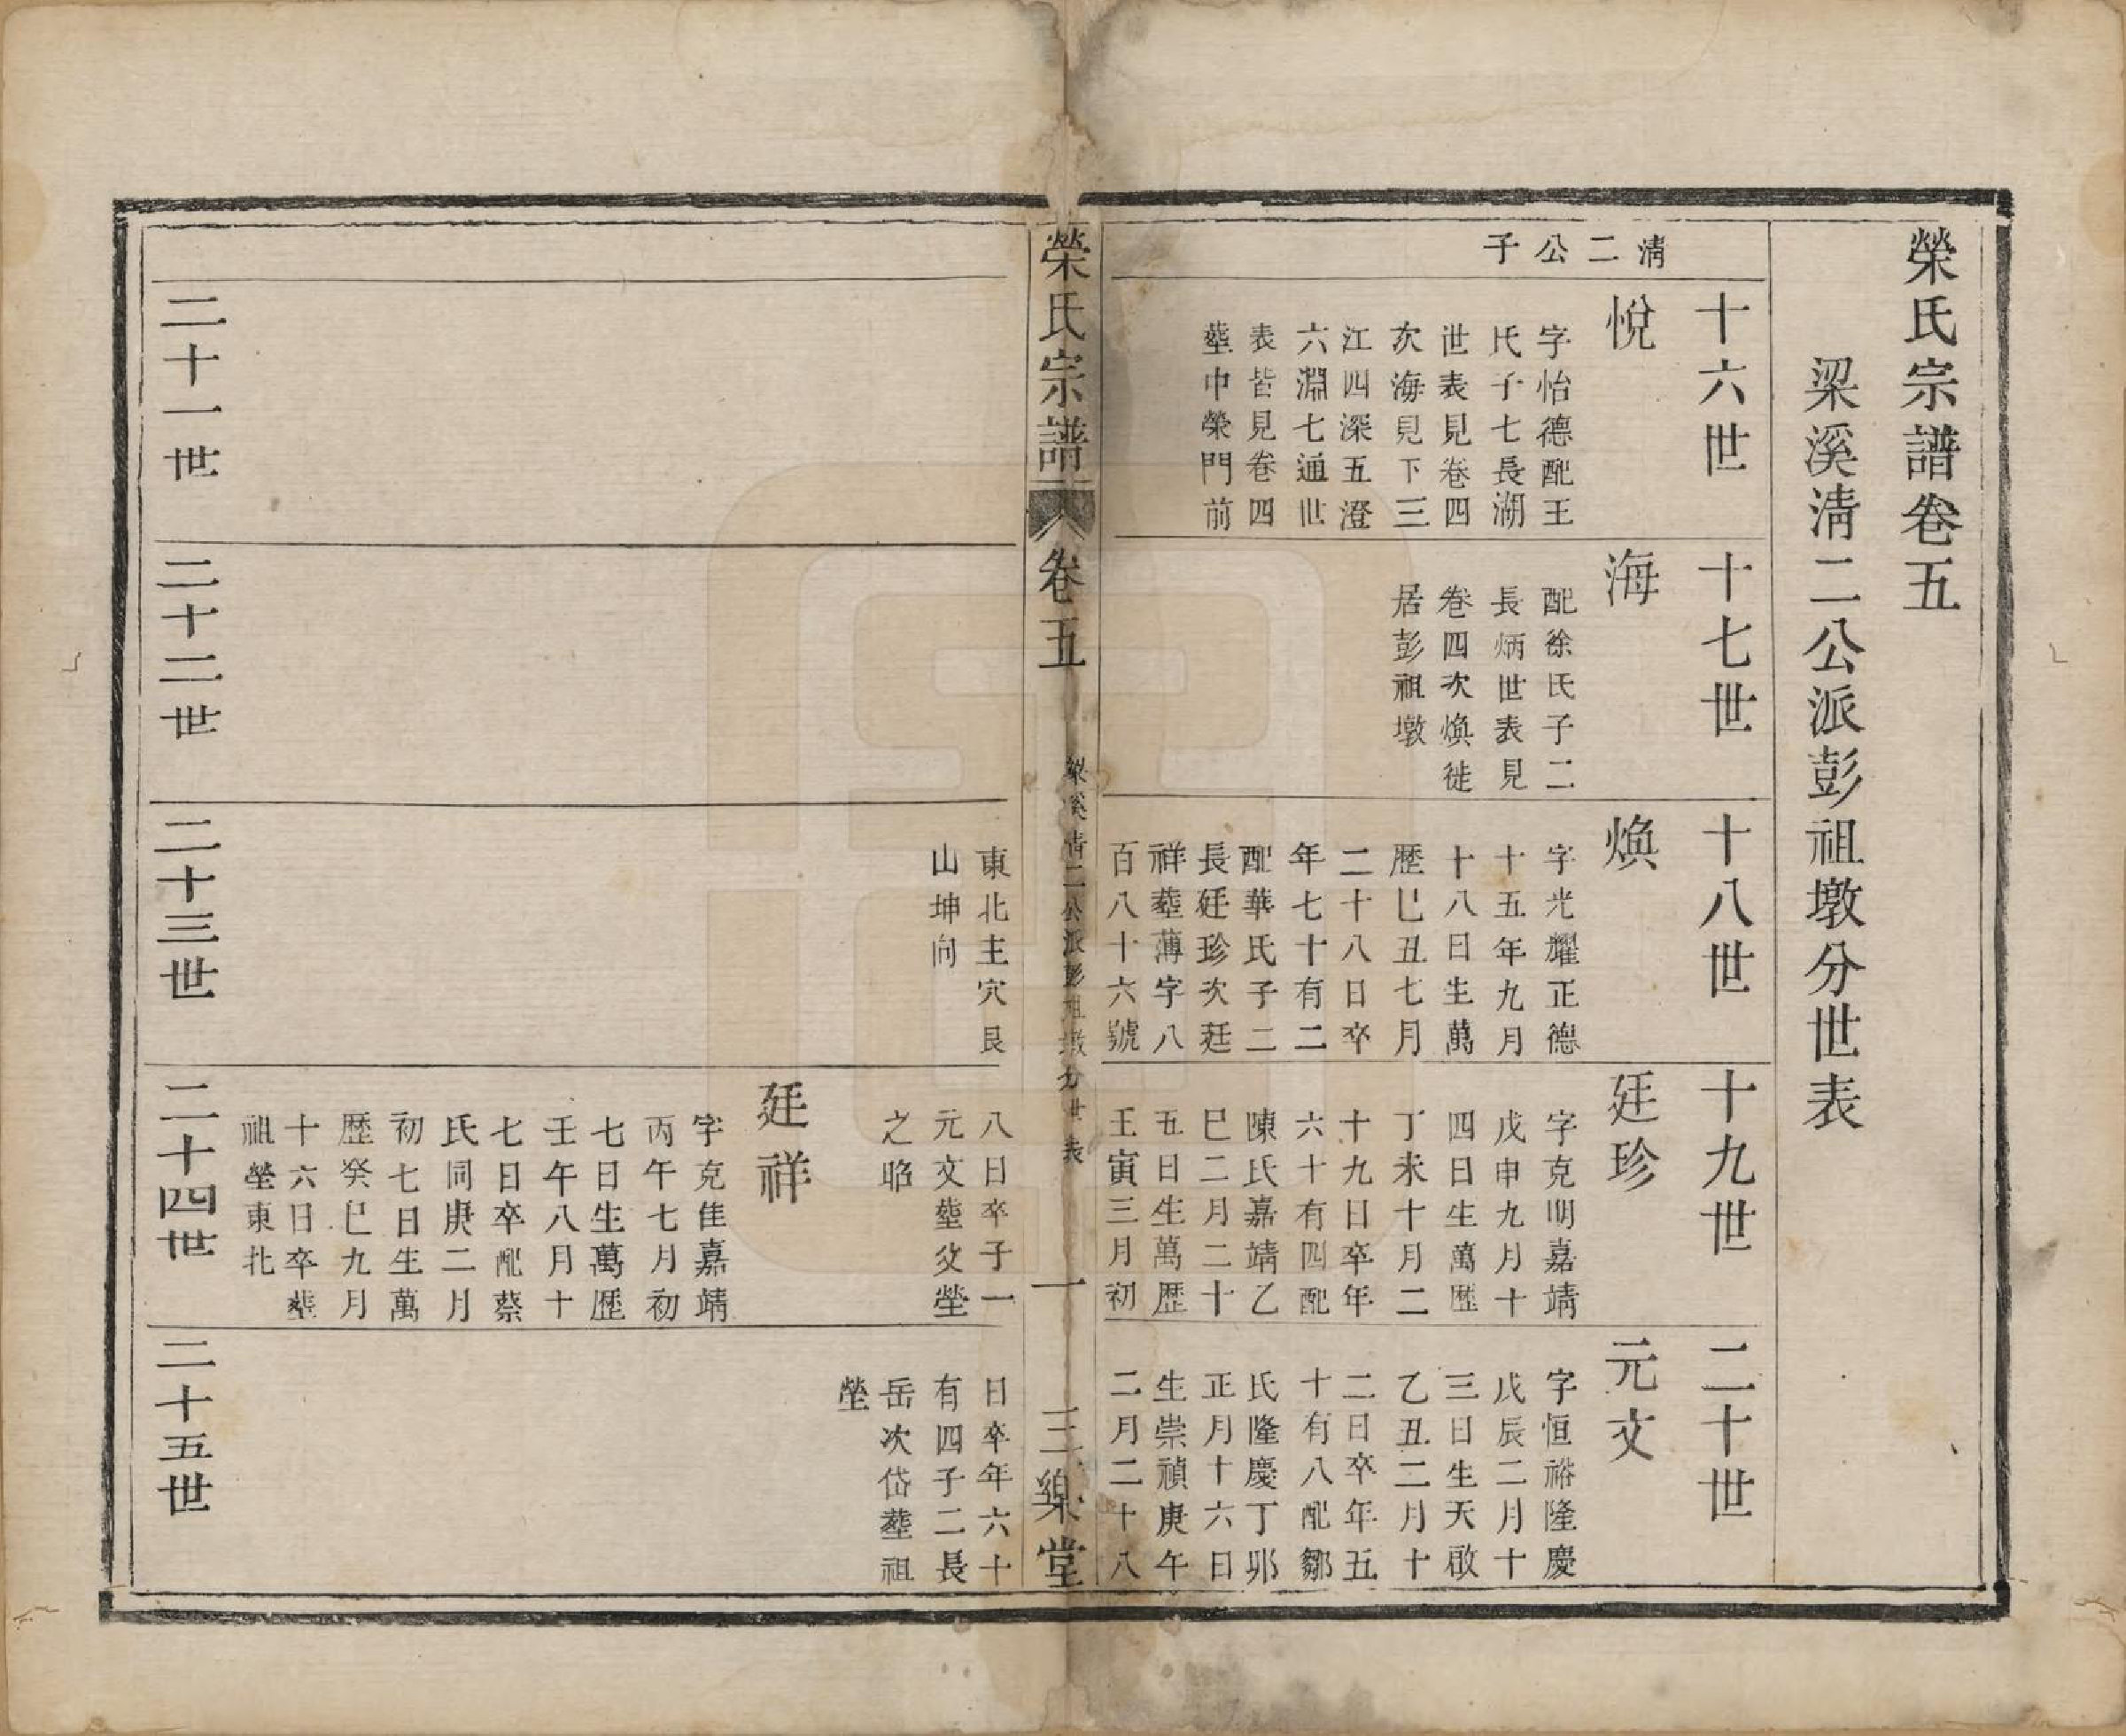 榮氏宗譜卷五
梁溪淸二公派彭祖墩分世表
十六世
十七世
十八世
十九世
二十世
淸二公子
悅
字怡德配王
氏子七長湖
世表見卷四
次海見下三
江四深五澄
六淵七通世
表皆見卷四
塟中榮門前
海
配徐氏子二
長炳世表見
卷四次煥徙
居彭祖墩
煥
字光耀正德
十五年九月
十八日生萬
歷己丑七月
二十八日卒
年七十有二
配華氏子二
長廷珍次廷
祥塟薄字八
百八十六號
東北主穴艮
山坤向
廷珍
字克明嘉靖
戊申九月十
四日生萬歷
丁未十月二
十九日卒年
六十有四配
陳氏嘉靖乙
巳二月二十
五日生萬歷
壬寅三月初
八日卒子一
元文塟父塋
之昭
元文
字恒裕隆慶
戊辰二月十
三日生天啟
乙丑二月十
二日卒年五
十有八配鄒
氏隆慶丁卯
正月十六日
生崇禎庚午
二月二十八
日卒年六十
有四子二長
岳次岱塟祖
塋
榮氏宗譜
卷五
梁溪淸二公派彭祖墩分世表
一
三樂堂
廷祥
字克佳嘉靖
丙午七月初
七日生萬歷
壬午八月十
七日卒配蔡
氏同庚二月
初七日生萬
歷癸巳九月
十六日卒塟
祖塋東北
二十一世
二十二世
二十三世
二十四世
二十五世